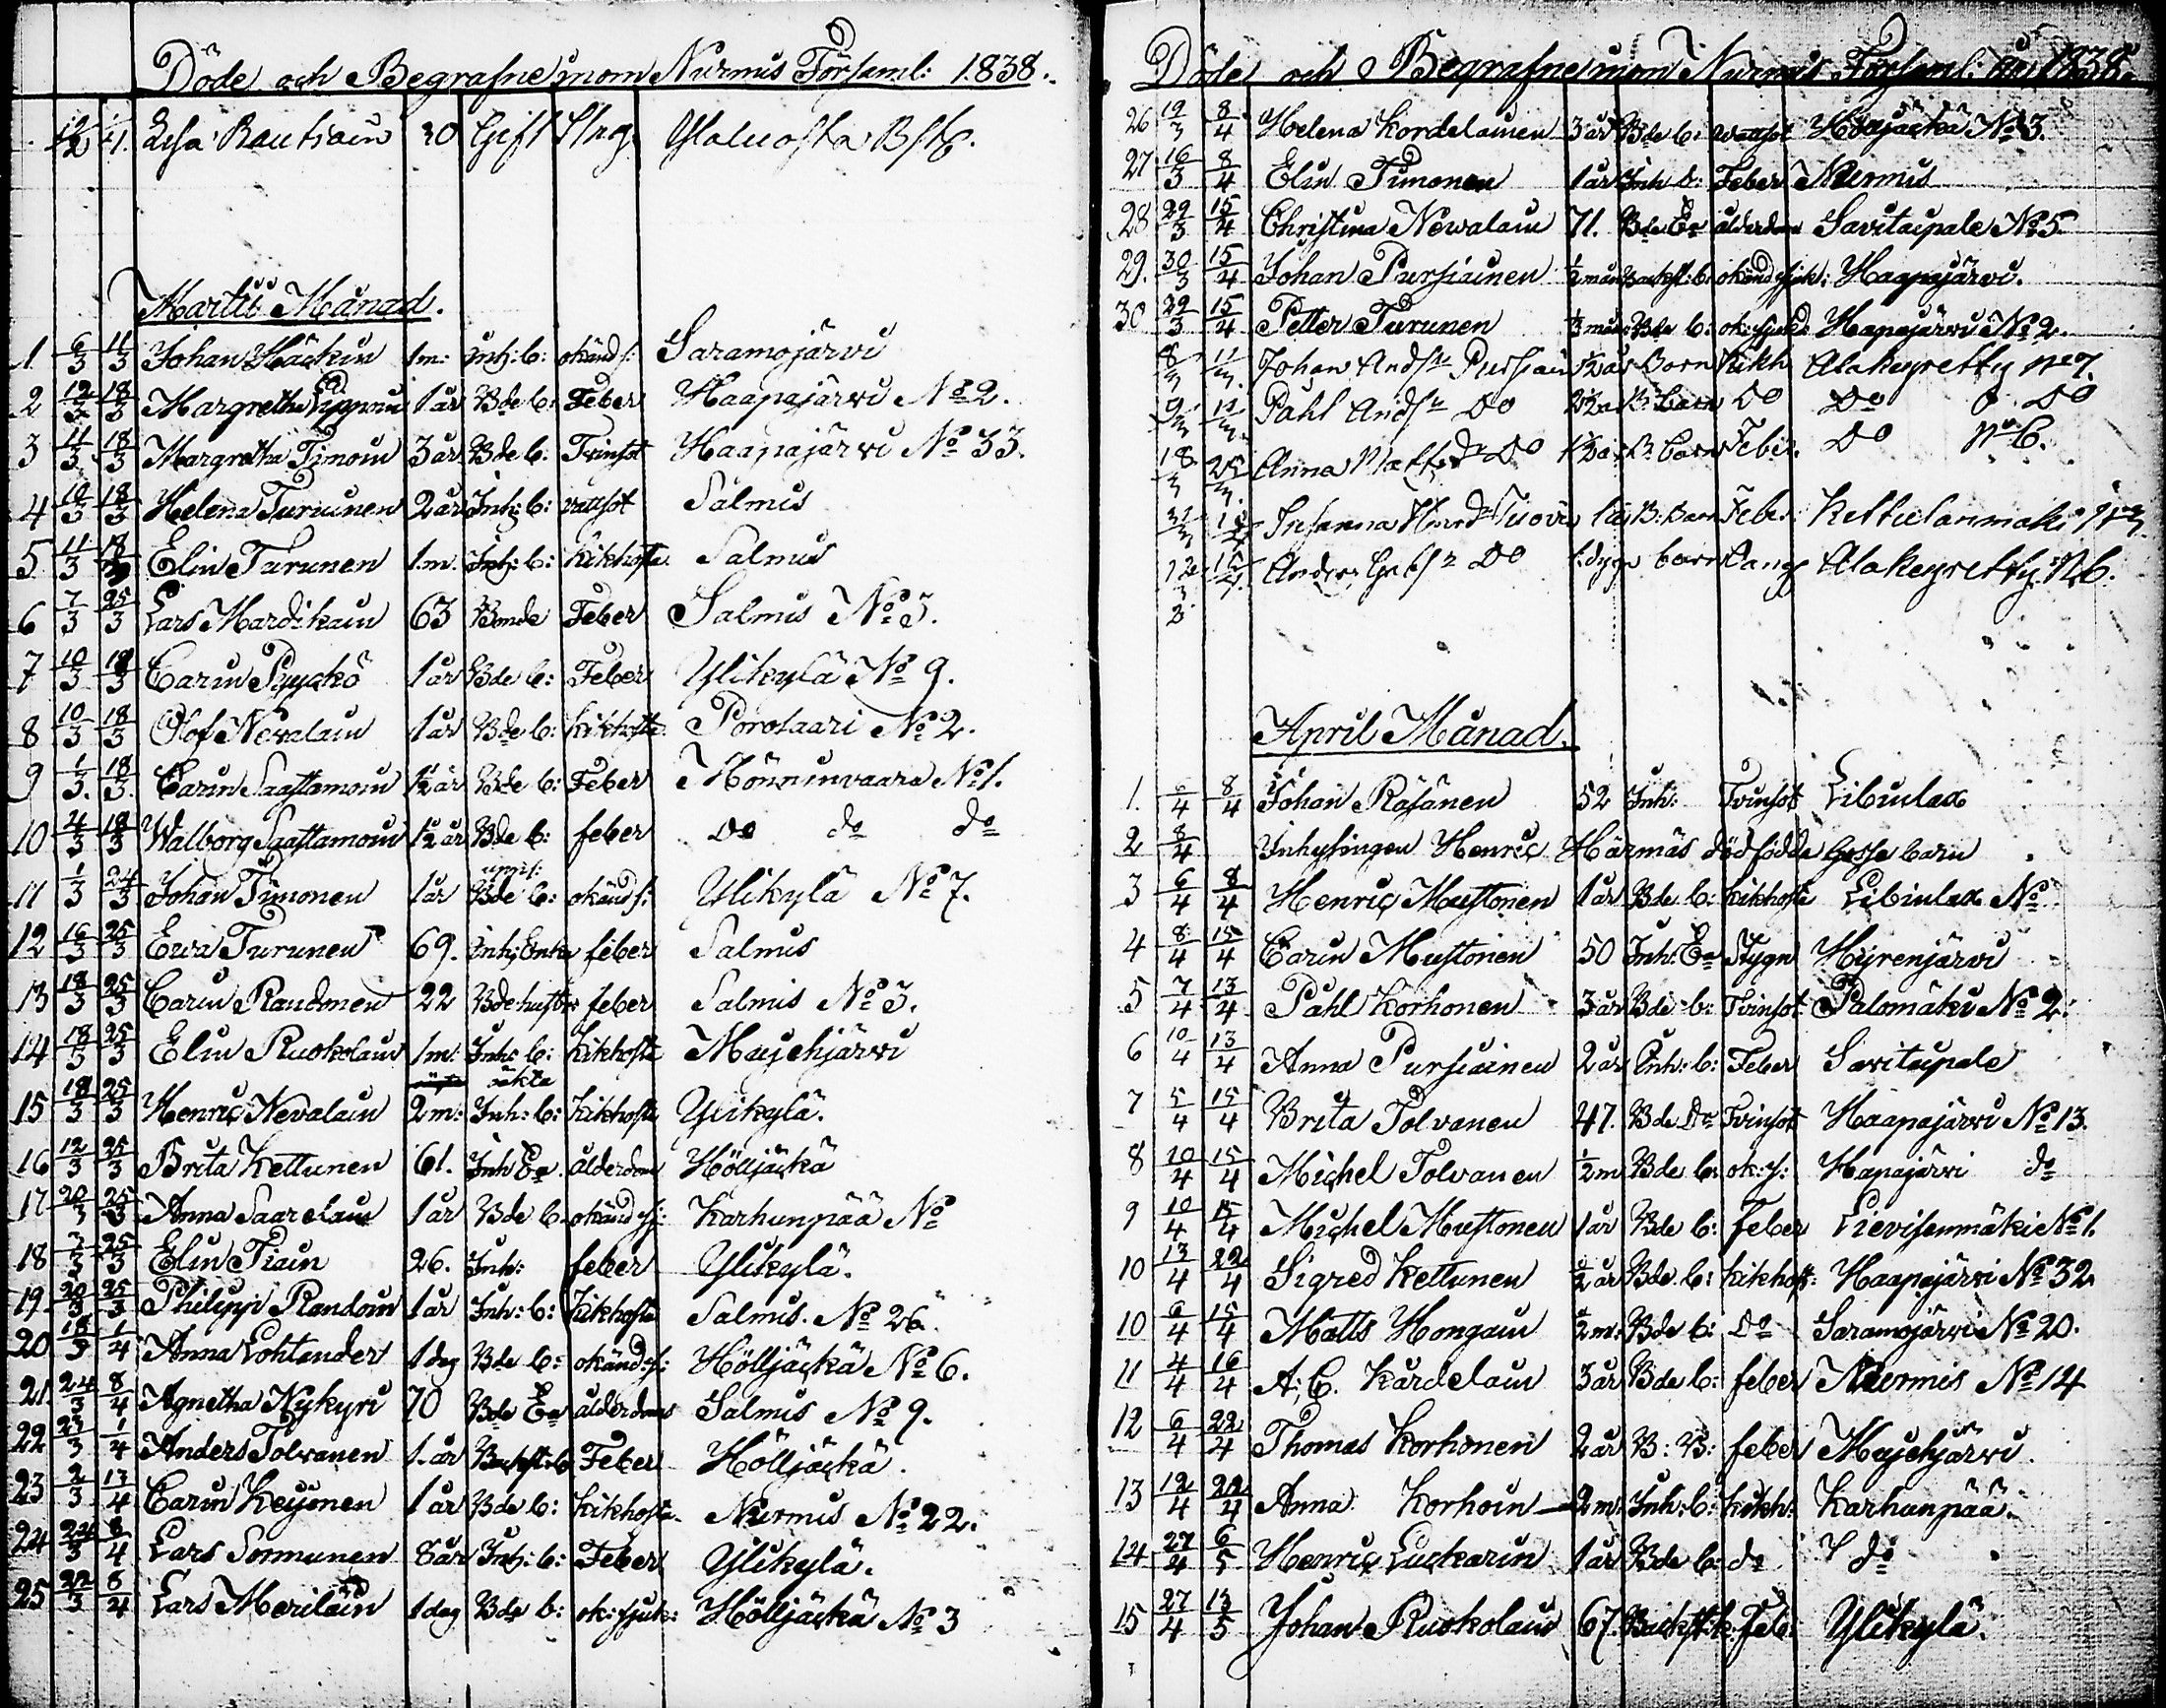 Döde och Begrafne inom Nurmis Församl: 1838.
Gift Ylaluosta
Martii Månad.
1 6/3 11/3 Johan Häckin 1m: Inh: b: okänd s: Saramojärvi
2 12/3 18/3 Margretha Lipponin 1 år Bde b: Feber Haapajärvi No 2.
3 11/3 18/3 Margretha Timoin 3 år Bde b: Tvinsot Haapajärvi No 33.
4 10/3 18/3 Helena Turunen 2 år Inh: b: vattsot Salmis
5 11/3 Elin Turunen 1m. Inh: b: Kikhosta Salmis
6 7/3 25/3 Lars Mardikain 63 Bonde Feber Salmis No 3.
7 10/3 18/3 Carin Pyyckö 1 år Bde b: Feber Ylikylä No 9.
8 10/3 18/3 Olof Nevalain 1 år Bde b: kikhosta Porosaari No 2.
9 1/3. 18/3. Carin Saastamoin 1½ år Bde b: Feber Mönninvaara No 1.
10 4/3 18/3 Walborg Saastamoin 1½ år Bde b: feber Do do do
11 1/3 24/3 Johan Timonen 1 år Bde b: okänd s: Ylikylä No 7.
12 16/3 25/3 Ewa Turunen 69. Inh: Enka feber Salmis
13 18/3 25/3 Carin Raudonen 22 Bde hustr feber Salmis No 3.
14 18/3 25/3 Elin Ruokolain 1m: Inh: b: Kikhosta Mujehjärvi
15 18/3 25/3 Henric Nevalain 2m: oäkta Inh: b: Kikhosta Ylikylä.
16 12/3 25/3 Brita Kettunen 61. Inh Ea ålderdom Höljäckä
17 20/3 25/3 Anna Saarelain 1 år Bde b. okänd sj: Karhunpää No
18 7/3 25/3 Elin Piain 26. Inh: feber Ylikylä.
19 20/3 25/3 Philipp Randoin 1 år Inh: b: Kikhosta Salmis. No 26.
20 18/3 1/4 Anna Lohlander 1 dag Bde b: okänd s: Höljäckä No 6.
21. 24/3 8/4 Agnetha Nykyri 70 Bde Ea ålderdoms Salmis No 9.
22 23/3 1/4 Anders Tolvanen 1 år Backst: b Feber Höljäckä.
23 2/3 13/4 Carin Keijonen 1 år Bde b: kikhosta. Nurmis No 22.
24 24/3 8/4 Lars Sormunen 8 år Inh: b: Feber Ylikylä.
25 22/3 8/4 Lars Meriläin 1 dag Bde b: ok: sjuk: Höljäckä No 3
Döde och Begrafne inom Nurmis Församl: 1838.
26 19/3 8/4 Helena Kordelainen 3 år Bde b: vattsot Höljäckä No 3.
27 16/3 8/4 Elin Timonen 1 år Inh b: Feber Nurmis
28 29/3 15/4 Christina Newalain 71. Bde Ea ålderdom Savitaipale No 5
29. 30/3 15/4 Johan Pursiainen ½ mån Backst: b: okänd sjuk: Haapajärvi.
30 29/3 15/4 Petter Turunen ⅓ mån: Bde b: ok: sjukd: Hapajärvi No 2.
8/3 11/3. Johan Born Kikh Alakeyretty No 7.
Pahl Do Do Do Do
18/3 25/3. Anna Do Feber. Do No 6.
Susanna B: Barn Feber. Kelkulanmäki
Anders Do barn Alakeyretty. N6.
April Månad.
1. 6/4 8/4 Johan Räsänen 52 Inh: Tvinsot Libinlax
2 8/4 Inhysingen Henric Härmäs dödfödde Gosse barn
3 6/4 8/4 Henric Mustonen 1 år Bde b: kikhosta Libinlax No
4 8/4 15/4 Carin Mustonen 50 Inh: Ea Stygn Hyrenjärvi
5 7/4 13/4 Pahl Korhonen 3 år Bde b: Tvinsot Palomäki No 2.
6 10/4 13/4 Anna Pursiainen 2 år Inh: b: Feber Savitaipale
7 5/4 15/4 Brita Tolvanen 47. Bde Tvinsot Haapajärvi No 13.
8 10/4 15/4 Michel Tolvanen ½ m Bde b: ok: s: Hapajärvi do
9 10/4 15/4 Michel Mustonen 1 år Bde b: feber Lievisenmäki No 1.
10 13/4 22/4 Sigred Kettunen ½ år Bde b: kikhost: Haapajärvi No 32.
10 6/4 15/4 Matts Hongain 2 m: Bde b: Do Saramojärvi No 20.
11 4/4 16/4 A: C. Kärdelain 3 år Bde b: feber Nurmis No 14
12 6/4 22/4 Thomas Korhonen 2 år B: B: feber Mujehjärvi
13 12/4 22/4 Anna Korhoin 2 m: Inh: b: kikh: Karhunpää.
14 27/4 6/5 Henric Luckarin 1 år Bde b: do do
15 27/4 13/5 Johan Ruokolain 67. Feb: Ylikylä.